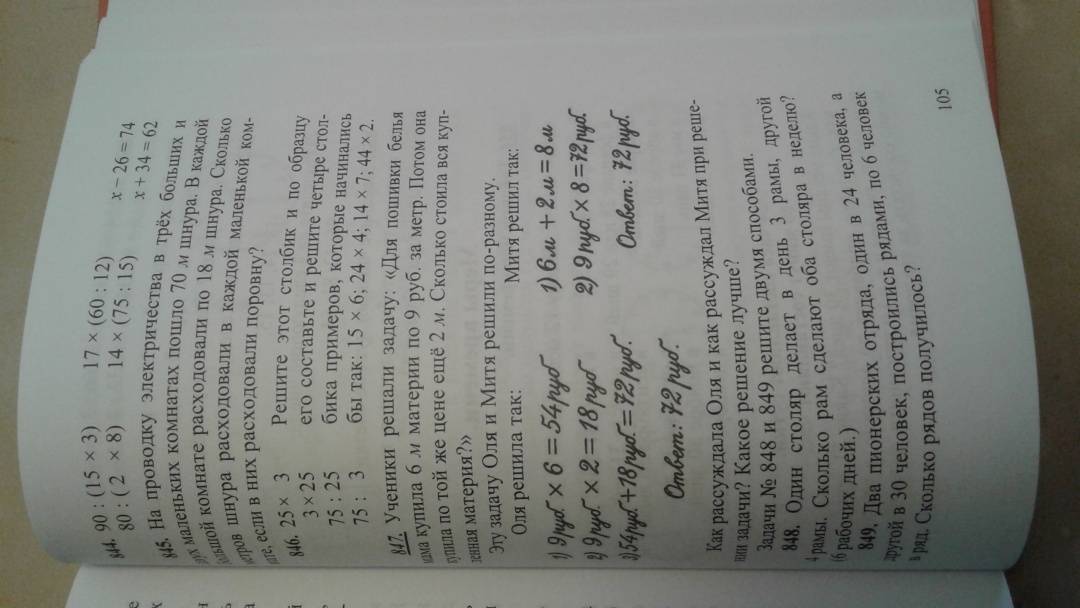 844. 90 : (15 × 3) 17 × (60 : 12) x − 26 = 74
80 : ( 2 × 8) 14 × (75 : 15) x + 34 = 62
845. На проводку электричества в трёх больших и
маленьких комнатах пошло 70 м шнура. В каждой
большой комнате расходовали по 18 м шнура. Сколько
метров шнура расходовали в каждой маленькой ком-
нате, если в них расходовали поровну?
846. 25 × 3 Решите этот столбик и по образцу
3 × 25 его составьте и решите четыре стол-
75 : 25 бика примеров, которые начинались
75 : 3 бы так: 15 × 6; 24 × 4; 14 × 7; 44 × 2.
847. Ученики решали задачу: «Для пошивки белья
мама купила 6 м материи по 9 руб. за метр. Потом она
купила по той же цене ещё 2 м. Сколько стоила вся куп-
ленная материя?»
Эту задачу Оля и Митя решили по-разному.
Оля решила так: Митя решил так:
1) 9 руб × 6 = 54 руб 1) 6 м + 2 м = 8 м
2) 9 руб × 2 = 18 руб 2) 9 руб × 8 = 72 руб
3) 54 руб + 18 руб = 72 руб. Ответ: 72 руб.
Ответ: 72 руб.
Как рассуждала Оля и как рассуждал Митя при реше-
нии задачи? Какое решение лучше?
Задачи № 848 и 849 решите двумя способами.
848. Один столяр делает в день 3 рамы, другой
4 рамы. Сколько рам сделают оба столяра в неделю?
(6 рабочих дней.)
849. Два пионерских отряда, один в 24 человека, а
другой в 30 человек, построились рядами, по 6 человек
в ряд. Сколько рядов получилось?
105